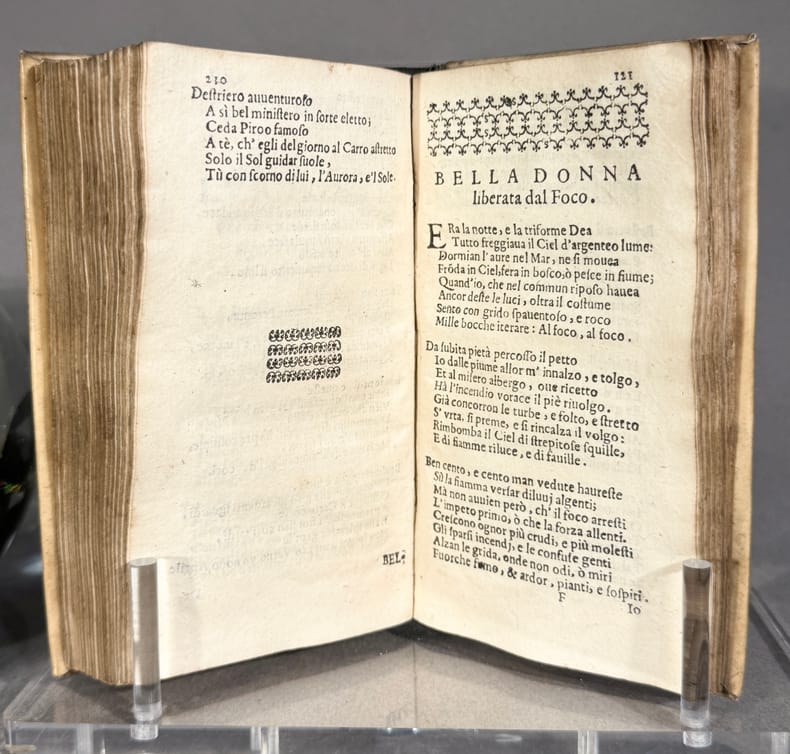 230
Deſtriero auuenturoſo
A sì bel miniſtero in ſorte eletto;
Ceda Piroo famoſo
A tè, ch' egli del giorno al Carro aſtretto
Solo il Sol guidar ſuole,
Tù con ſcorno di lui, l'Aurora, e'l Sole.
BEL-
121
BELLA DONNA
liberata dal Foco.
ERa la notte, e la triforme Dea
Tutto freggiaua il Ciel d'argenteo lume:
Dormian l'aure nel Mar, ne ſi mouea
Frōda in Ciel, fera in boſco, ò peſce in fiume;
Quand'io, che nel commun ripoſo hauea
Ancor deſte le luci, oltra il coſtume
Sento con grido ſpauentoſo, e roco
Mille bocche iterare: Al foco, al foco.
Da ſubita pietà percoſſo il petto
Io dalle piume allor m' innalzo, e tolgo,
Et al miſero albergo, oue ricetto
Hà l'incendio vorace il piè riuolgo.
Già concorron le turbe, e folto, e ſtretto
S' vrta, ſi preme, e ſi rincalza il volgo:
Rimbomba il Ciel di ſtrepitoſe ſquille,
E di fiamme riluce, e di fauille.
Ben cento, e cento man vedute haureſte
Sù la fiamma verſar diluuj algenti;
Mà non auuien però, ch' il foco arreſti
L'impeto primo, ò che la forza allenti.
Creſcono ognor più crudi, e più moleſti
Gli ſparſi incendj, e le confuſe genti
Alzan le grida, onde non odi, ò miri
Fuorche fumo, & ardor, pianti, e ſoſpiri.
F
Io